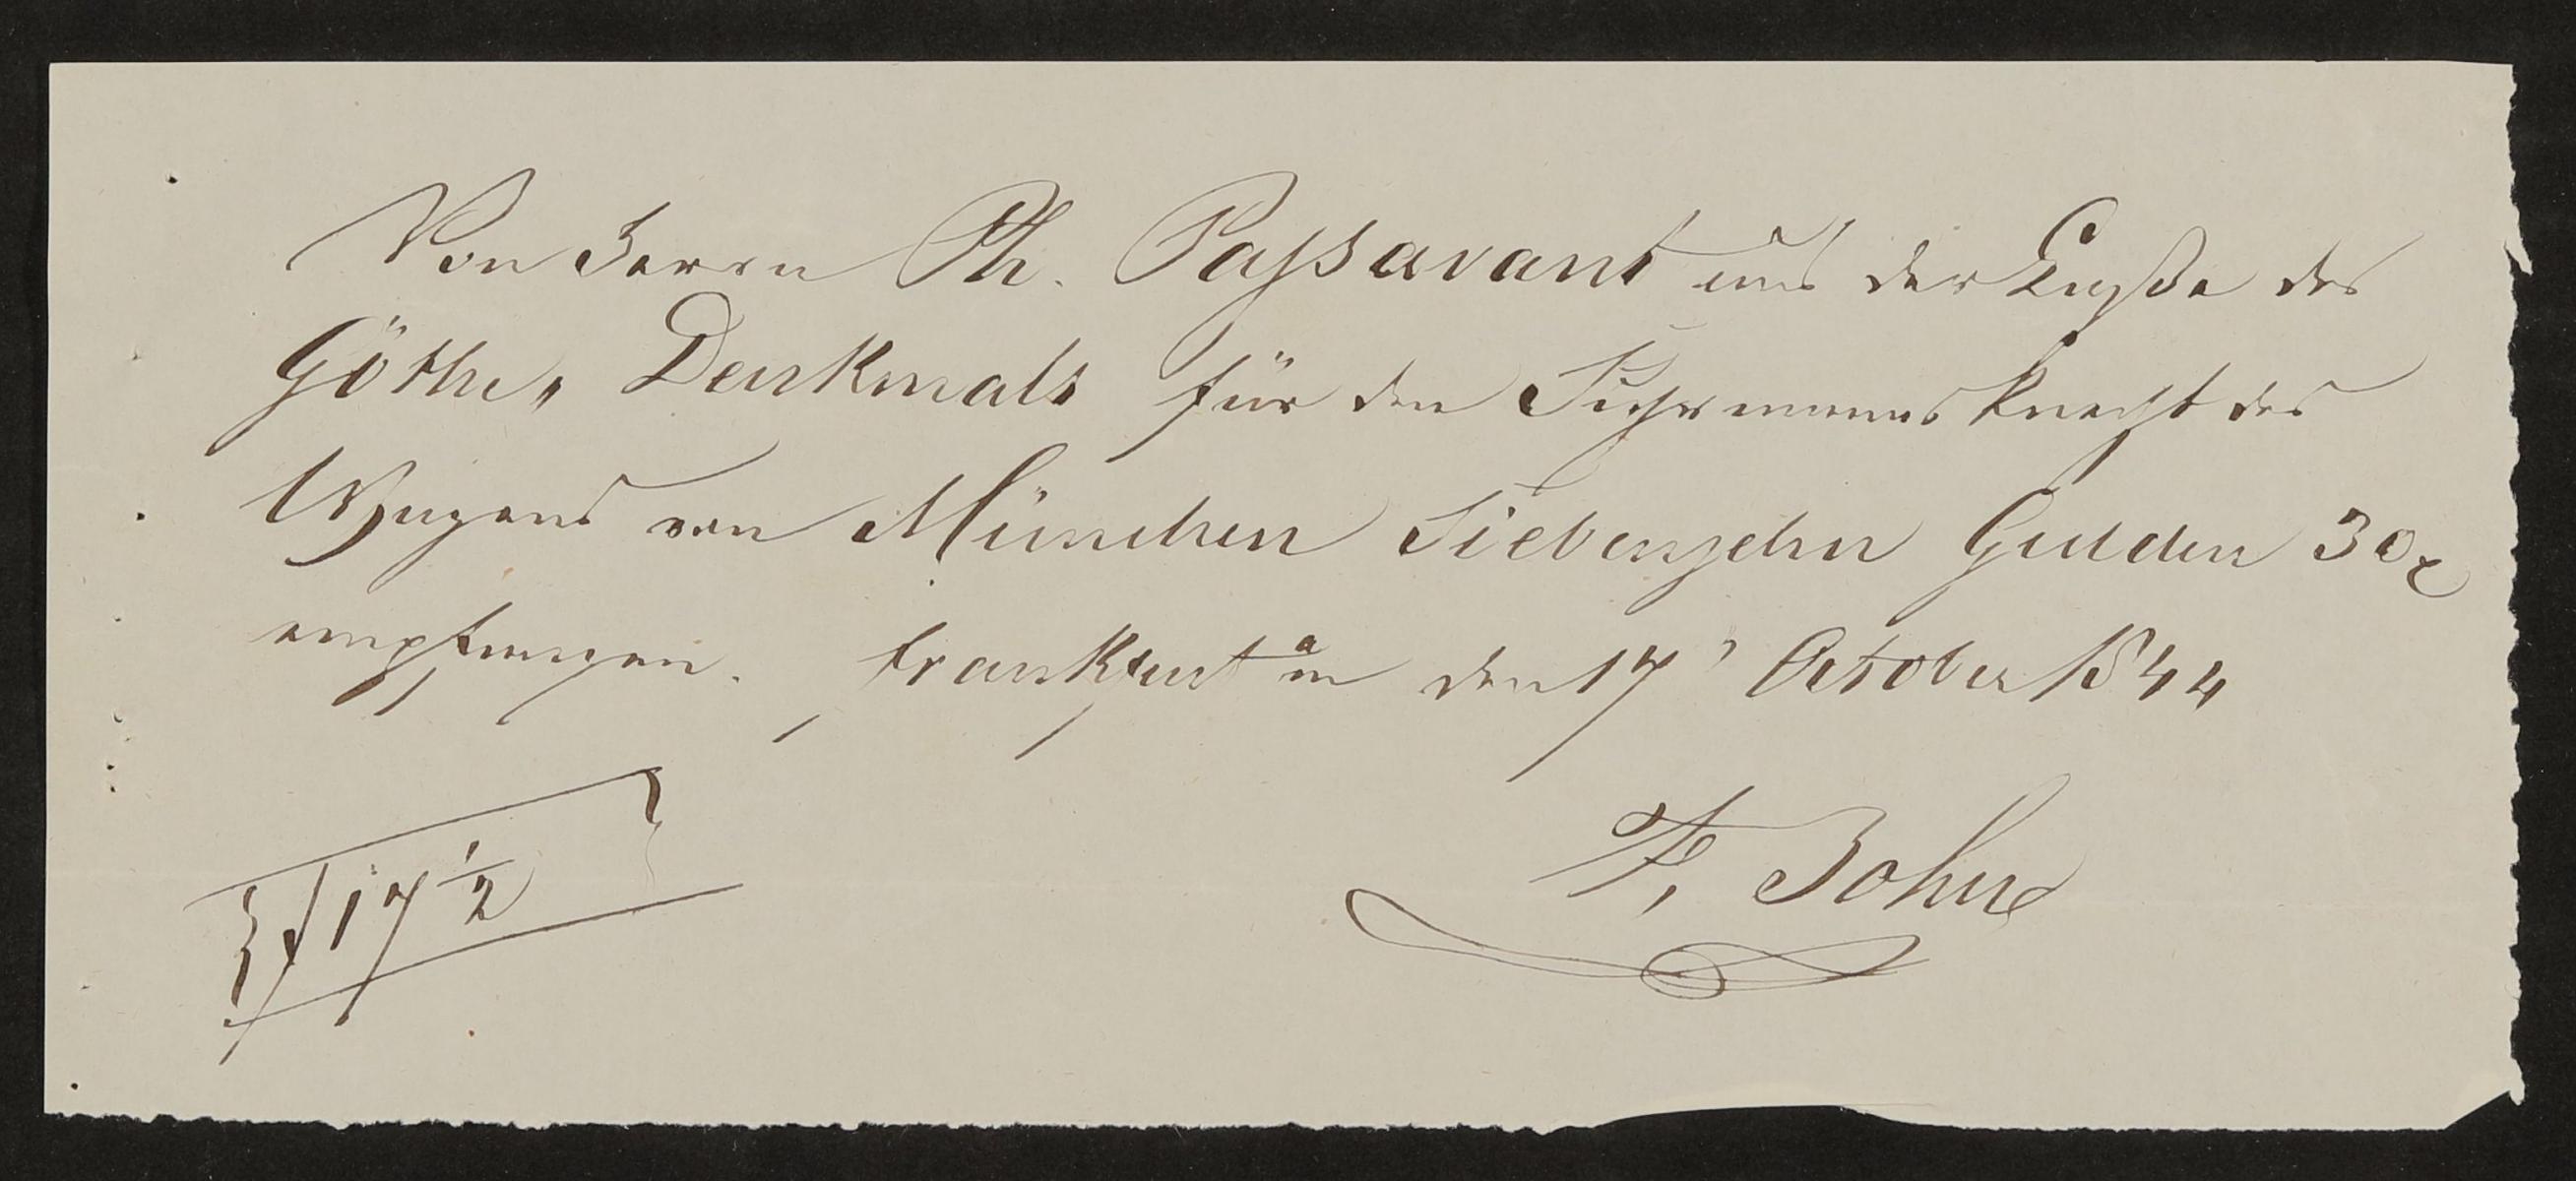 Von Herrn Ph. Paßavant aus der Caße des
Göthe, Denkmals für den Fuhrmanns Knecht des
Wagens von München Siebenzehn Gulden 30x
empfangen. Frankfurt a/m den 17' October 1844
f 17 1/2
F, Bohn